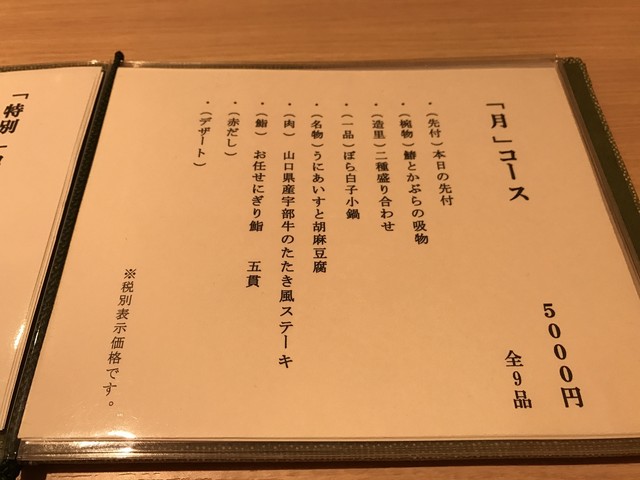 「月」コース
5000円
全9品
・(先付)本日の先付
・(椀物)鰆とかぶらの吸物
・(造里)二種盛り合わせ
・(一品)ぼら白子小鍋
・(名物)うにあいすと胡麻豆腐
・(肉) 山口県産宇部牛のたたき風ステーキ
・(鮨) お任せにぎり鮨 五貫
・(赤だし)
・(デザート)
※税別表示価格です。
「特別」